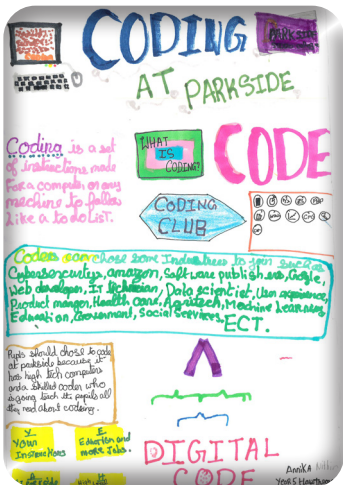 CODING
PARKSIDE
AT PARKSIDE
Coding is a set
of instructions made
For a computer or any
machine to follow
Like a to do List.
WHAT
IS
CODING?
CODE
CODING
CLUB
Coders can chose some Industrees to join such as
Cybersecurtys, amazon, Software publishers, Google,
Web developer, It technician, Data scientist, User experience,
Product manger, Health care, Agritech, Machine Learnens,
Education, Government, Social Services, ECT.
Pupils should chose to code
at parkside because it
has high tech computers
and a skilled coder who
is going teach the pupils all
they need about codeing.
Y
Your
Instructions
E
Education and
more Jobs.
DIGITAL
CODE
Annika
Year 5